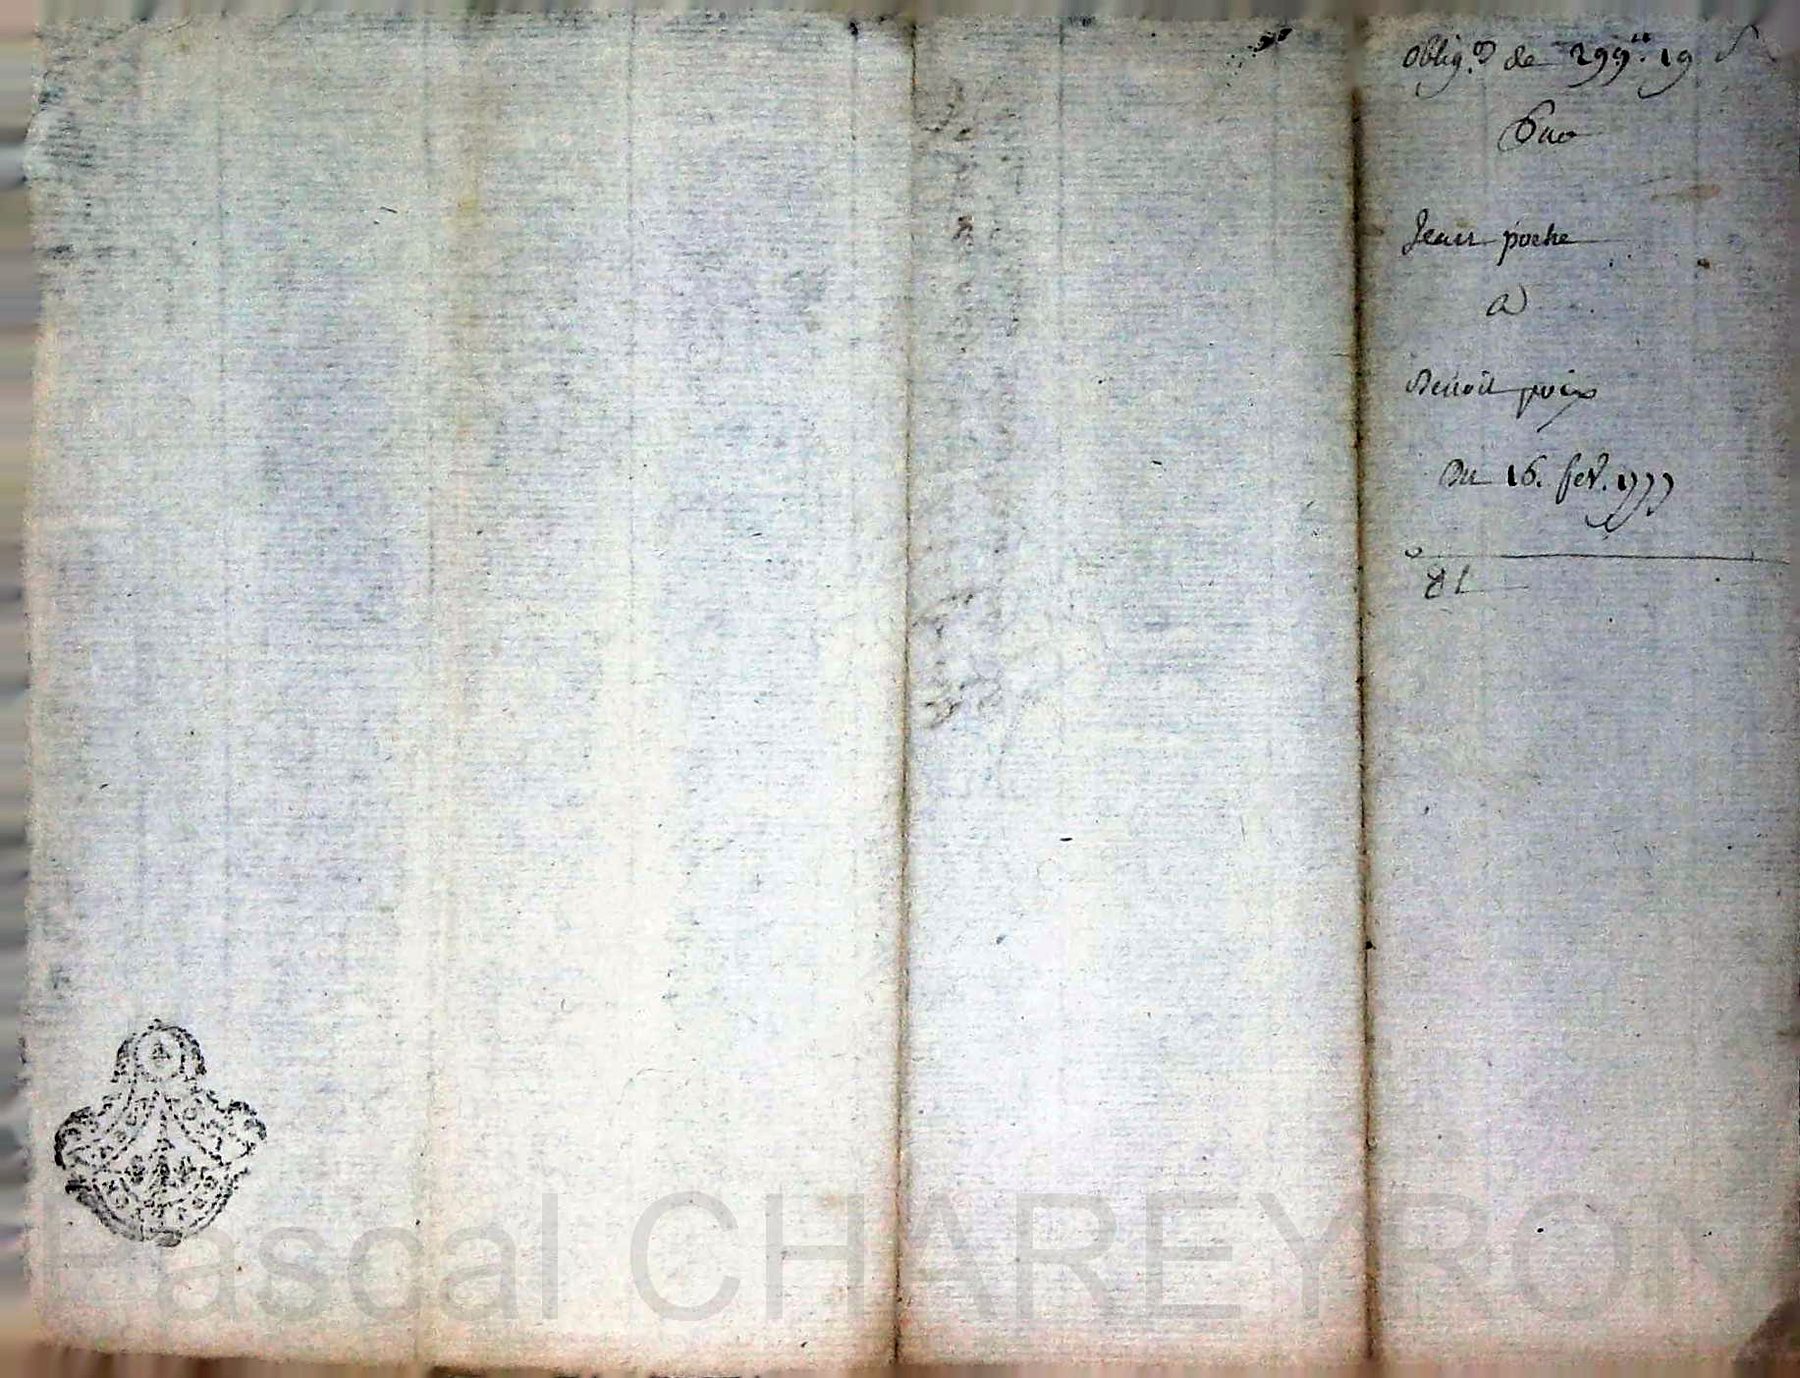 oblig.on de 299.lt 19 s
Par
Jean poche
a
Benoit poix
Du 16. fev. 1777
Pascal CHAREYRON